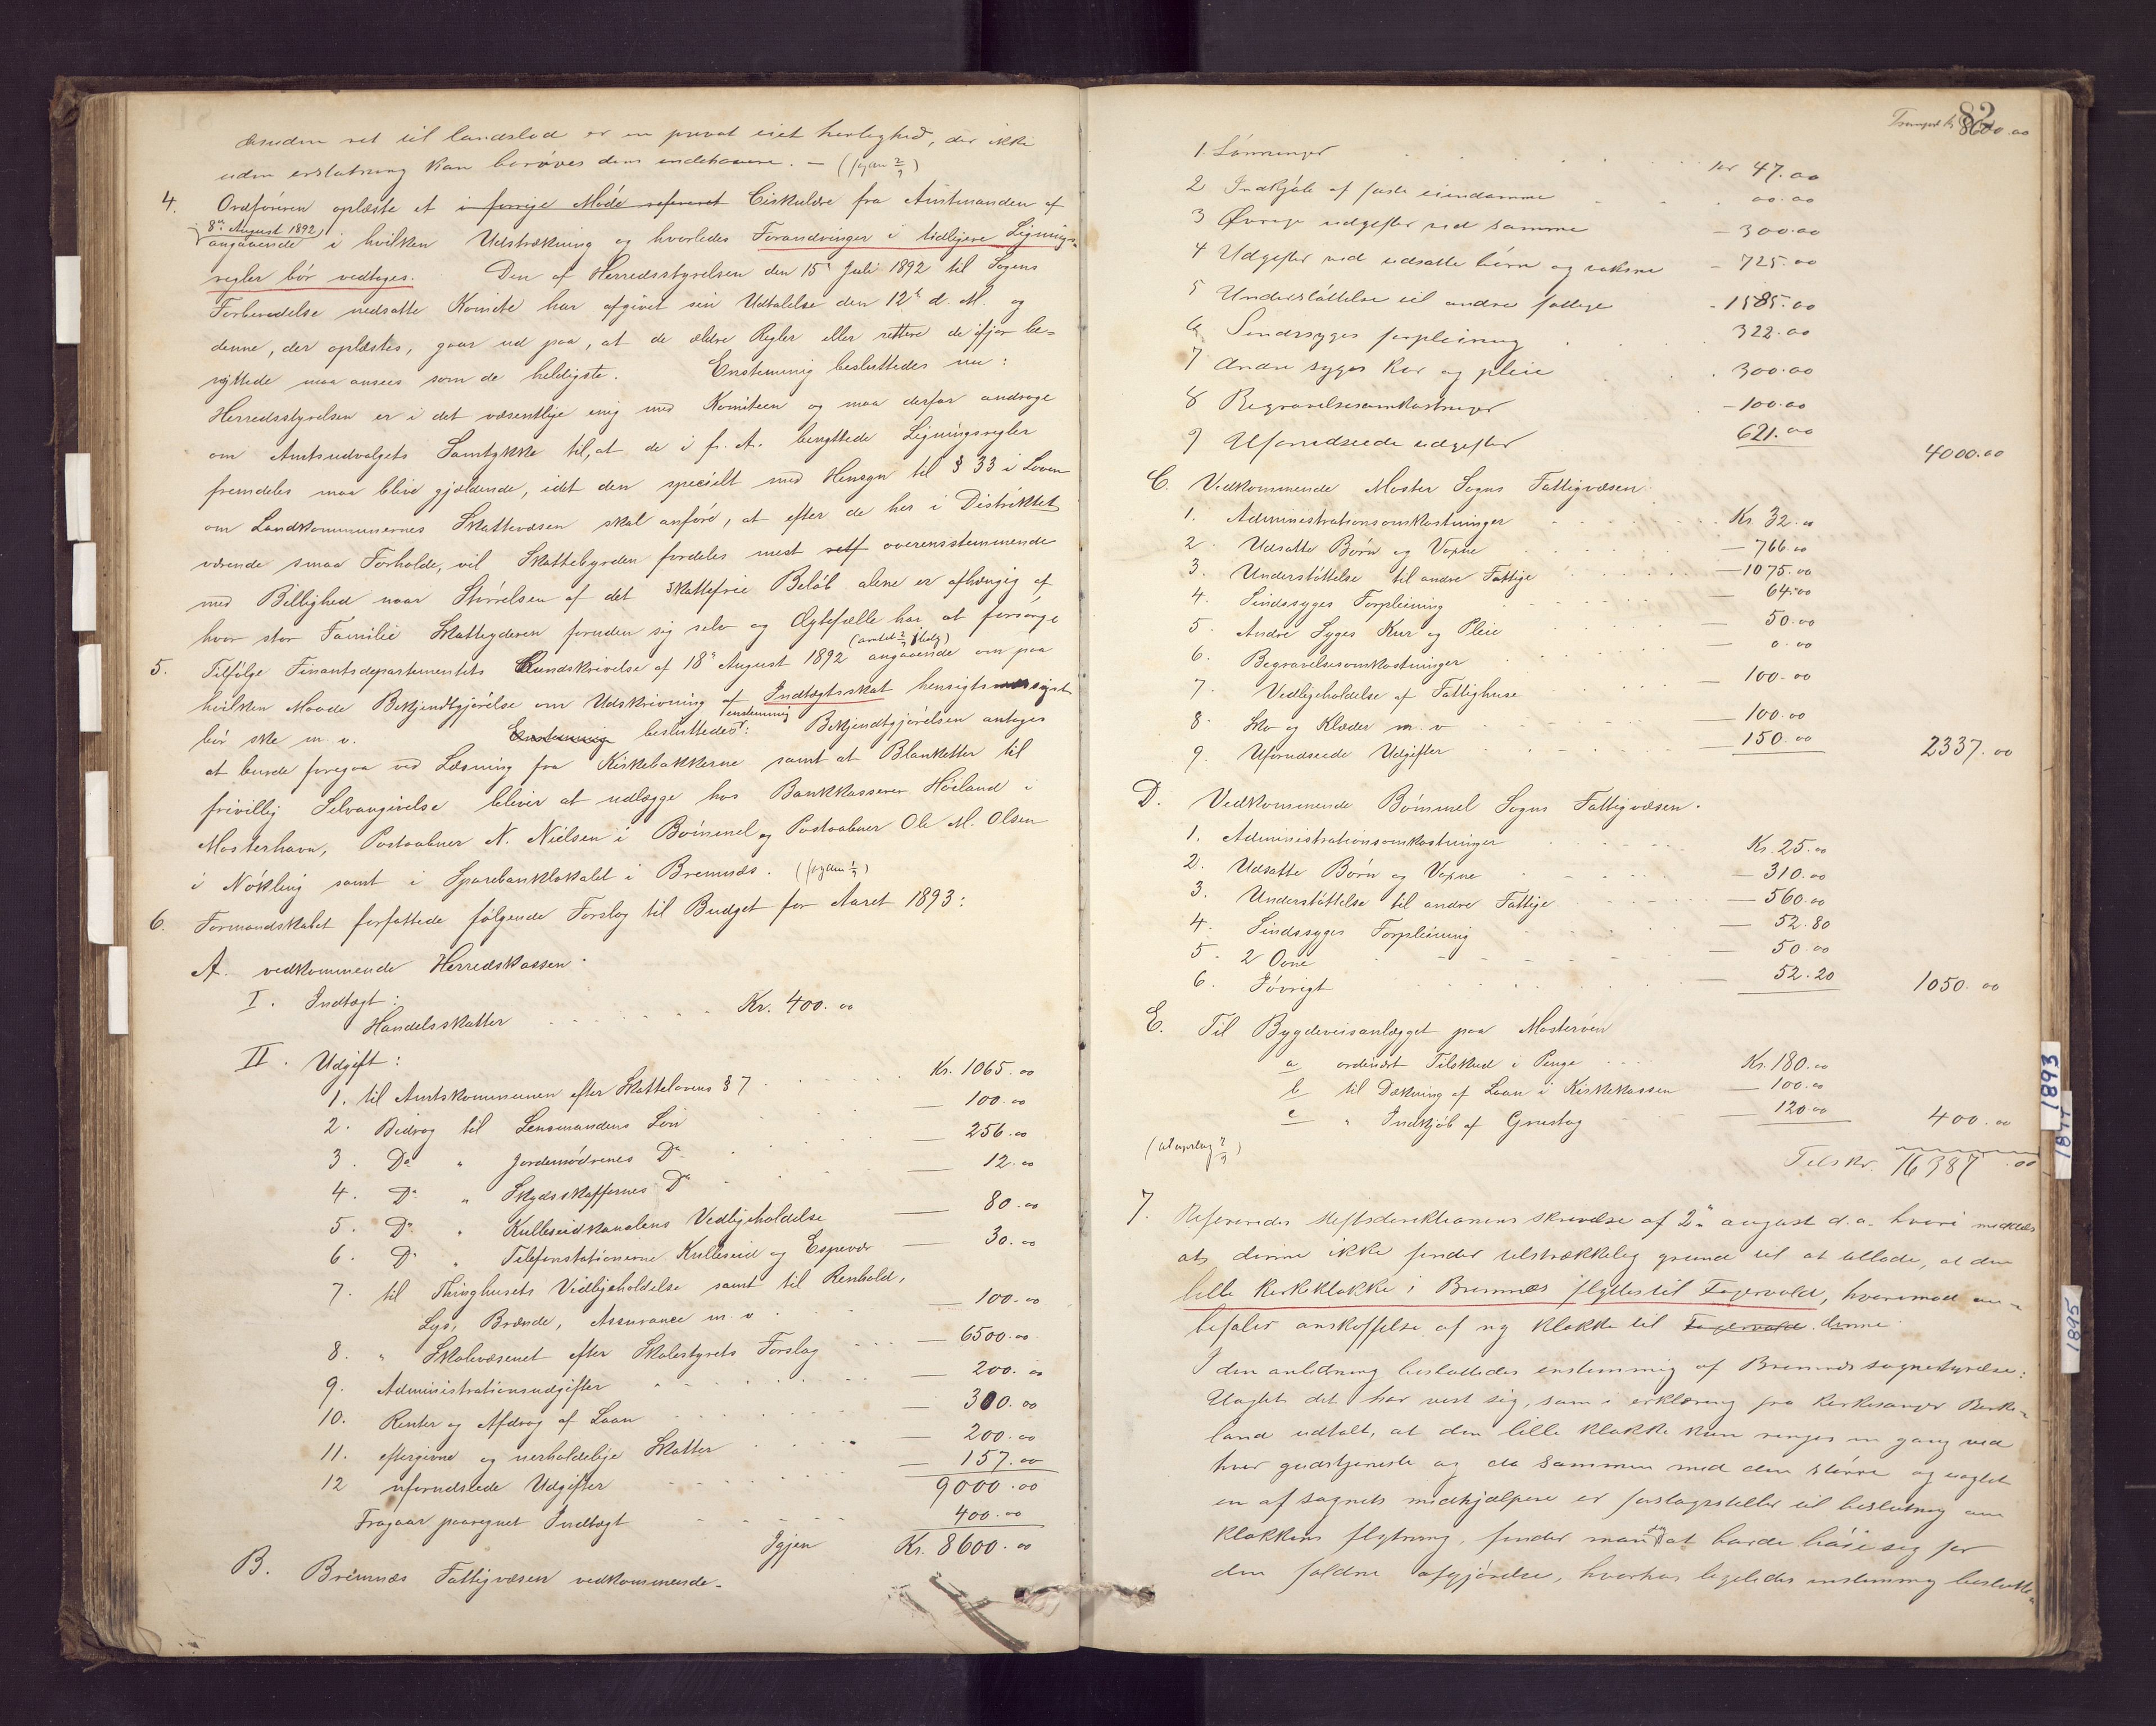 desuden ret til landslod er en privat eiet herlighed, der ikke
uden erstatning kan berøves dens indehavere. —
4. Ordføreren oplæste et i forrige Møde refereret Cirkulære fra Amtmanden af
8de August 1892
angaaende i hvilken Udstrækning og hvorledes Forandringer i tidligere Lignings-
regler bør vedtages. Den af Herredsstyrelsen den 15de Juli 1892 til Sagens
Forberedelse nedsatte Komite har afgivet sin Udtalelse den 12te d. M. og
denne, der oplæstes, gaar ud paa, at de ældre Regler eller rettere de ifjor be-
nyttede maa ansees som de heldigste. Enstemmig besluttedes nu:
Herredsstyrelsen er i det væsentlige enig med Komiteen og maa derfor andrage
om Amtsudvalgets Samtykke til, at de i f. A. benyttede Ligningsregler
fremdeles maa blive gjældende, idet den specielt med Hensyn til § 33 i Loven
om Landkommunernes Skattevæsen skal anføre, at efter de her i Distriktet
værende smaa Forholde, vil Skattebyrden fordeles mest overensstemmende
med Billighed naar Størrelsen af det skattefrie Beløb alene er afhængig af
hvor stor Familie Skatteyderen foruden sig selv og Ægtefælle har at forsørge
5. Tilfølge Finantsdepartementets Rundskrivelse af 18de August 1892 angaaende om paa
hvilken Maade Bekjendtgjørelse om Udskrivning af Indtægtsskat hensigtsmæssigst
bør ske m. v. Enstemmig besluttedes enstemmig: Bekjendtgjørelsen antages
at burde foregaa ved Læsning fra Kirkebakkerne samt at Blanketter til
frivillig Selvangivelse bliver at udlægge hos Bankkasserer Høiland i
Mosterhavn, Postaabner N. Nielsen i Bømmel og Postaabner Ole M. Olsen
i Nøkling samt i Sparebanklokalet i Bremnæs.
6. Formandskabet forfattede følgende Forslag til Budget for Aaret 1893:
A. vedkommende Herredskassen.
I. Indtægt:
Handelsskatter Kr. 400.00
II. Udgift:
1. til Amtskommunen efter Skattelovens § 7 Kr. 1065.00
2. Bidrag til Lensmandens Løn — 100.00
3. Do " Jordemødrenes Do — 256.00
4. Do " Skydsskaffernes Do — 12.00
5. Do " Kulleseidkanalens Vedligeholdelse — 80.00
6. Do " Telefonstationerne Kulleseid og Espevær — 30.00
7. til Thinghusets Vedligeholdelse samt til Renhold,
Lys, Brænde, Assurance m. v. — 100.00
8. " Skolevæsenet efter Skolestyrets Forslag — 6500.00
9. Administrationsudgifter — 200.00
10. Renter og Afdrag af Laan — 300.00
11. eftergivne og uerholdelige Skatter — 200.00
12 uforudseede Udgifter — 157.00
9000.00
Fragaar paaregnet Indtægt 400.00
Igjen Kr. 8600.00
B. Bremnæs Fattigvæsen vedkommende.
82
Transport kr 8600.00
1. Lønninger kr 47.00
2 Indkjøb af faste eiendomme 00.00
3 Øvrige udgifter ved samme — 300.00
4 Udgifter ved udsatte børn og voksne — 725.00
5 Understøttelse til andre fattige - 1585.00
6 Sindssyges forpleining 322.00
7 Andre syges kur og pleie 300.00
8 Begravelsesomkostninger — 100.00
9 Uforudseede udgifter 621.00
4000.00
C. Vedkommende Moster Sogns Fattigvæsen.
1. Administrationsomkostninger Kr. 32.00
2. Udsatte Børn og Voxne — 766.00
3. Understøttelse til andre Fattige — 1075.00
4. Sindssyges Forpleining — 64.00
5. Andre Syges Kur og Pleie — 50.00
6. Begravelsesomkostninger — 0.00
7. Vedligeholdelse af Fattighuse — 100.00
8. Sko og Klæder m. v — 100.00
9. Uforudseede Udgifter — 150.00
2337.00
D. Vedkommende Bømmel Sogns Fattigvæsen.
1. Administrationsomkostninger Kr. 25.00
2. Udsatte Børn og Voxne — 310.00
3. Understøttelse til andre Fattige — 560.00
4. Sindssyges Forpleining — 52.80
5. 2 Ovne — 50.00
6. Iøvrigt — 52.20
1050.00
E. Til Bygdeveisanlægget paa Mosterøen
a ordinært Tilskud i Penge Kr. 180.00
b til Dækning af Laan i Kirkekassen — 100.00
c " Indkjøb af Grustag — 120.00
400.00
Tils kr. 16387.00
7. Refereredes stiftsdirektionens skrivelse af 2den august d.a. hvori meddeles
at denne ikke finder tilstrækkelig grund til at tillade, at den
lille kirkeklokke i Bremnæs flyttes til Fagervold, hvorimod an-
befaler anskaffelse af ny klokke til Fagervold denne.
I den anledning besluttedes enstemmig af Bremnæs sognestyrelse:
Uagtet det har vist sig, som i erklæring fra kirkesanger Birke-
land udtalt, at den lille klokke kun ringes en gang ved
hver gudstjeneste og da sammen med den større og uagtet
en af sognets medhjælpere er forslagsstiller til beslutning om
klokkens flytning, finder man dog at burde bøie sig for
den faldne afgjørelse, hvorhos ligeledes enstemmig beslutte-
1893
1894
1895